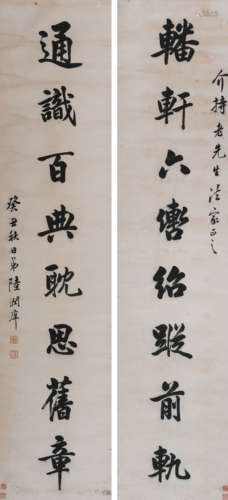 介持老先生法家正之
轓軒六轡紹蹤前軌
通識百典耽思舊章
癸丑秋日弟陸潤庠